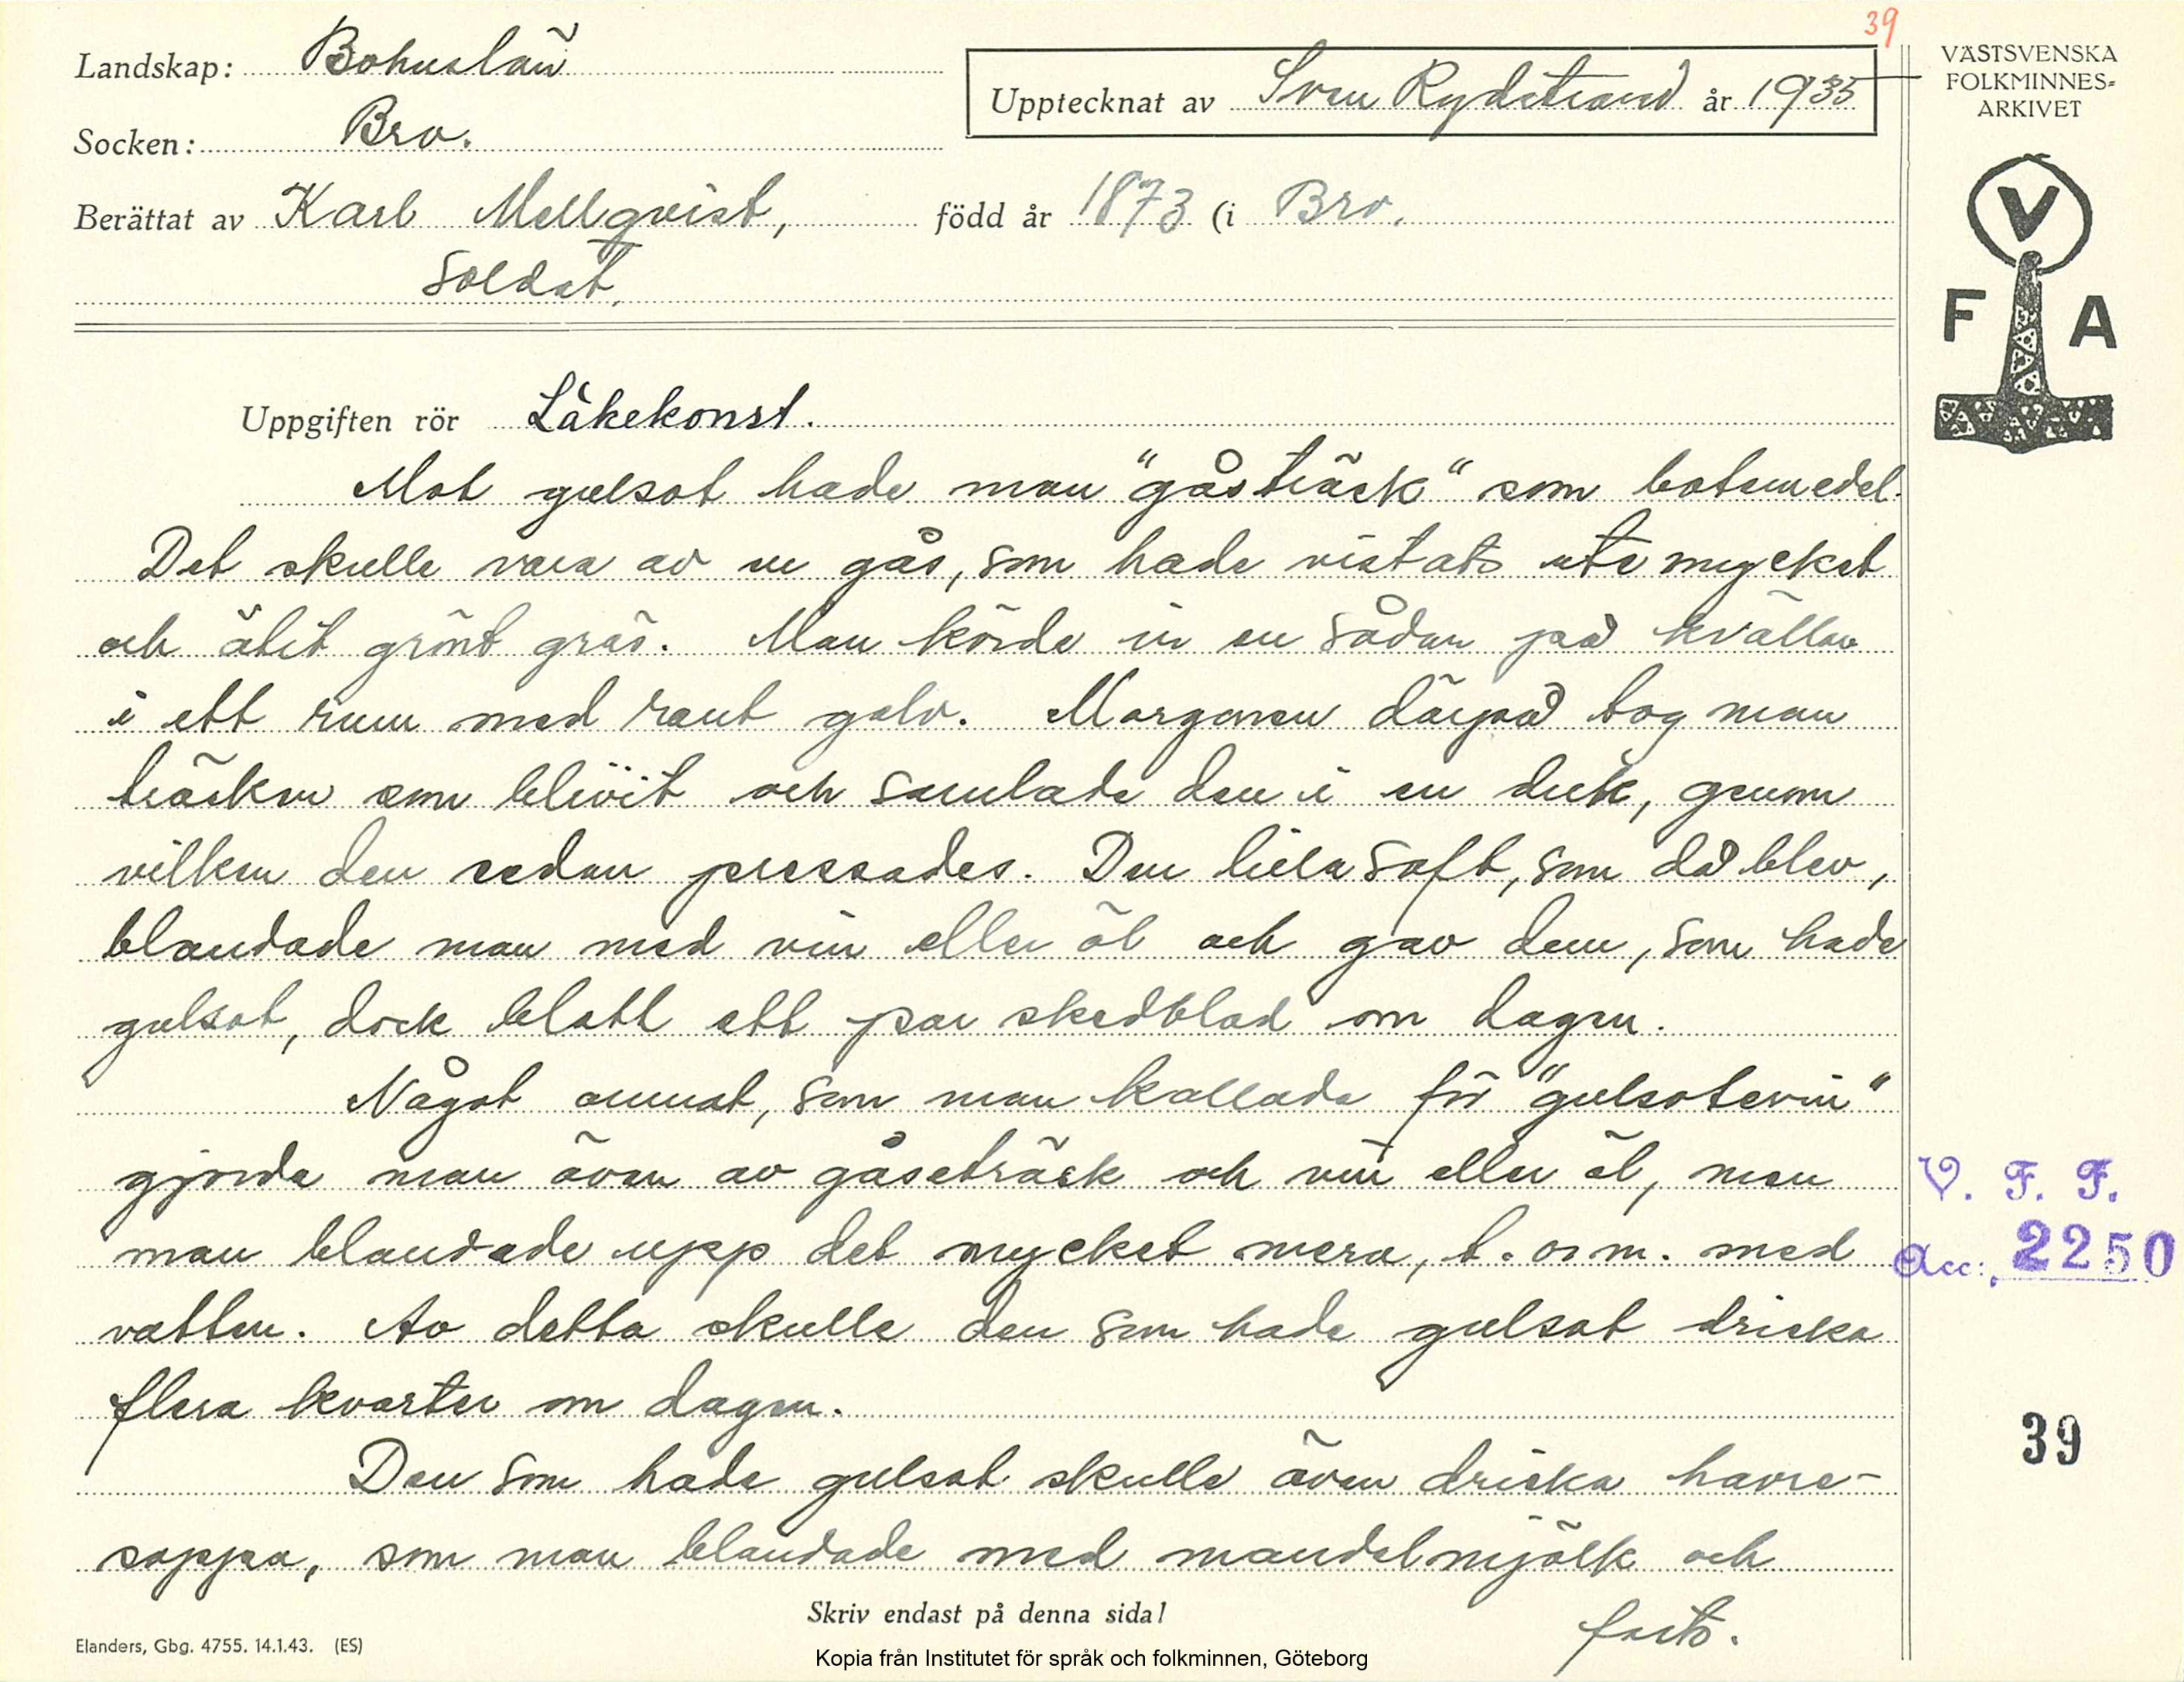 39
Landskap: Bohuslän
Upptecknat av Sven Rydstrand år 1935
VÄSTSVENSKA
FOLKMINNES=
ARKIVET
Socken: Bro.
Berättat av Karl Mellqvist, född år 1873 (i Bro.
Soldat.
V
F A
Uppgiften rör Läkekonst.
Mot gulsot hade man "gåsträck" som botemedel.
Det skulle vara av en gås, som hade vistats ute mycket
och ätit grönt gräs. Man körde in en sådan på kvällen
i ett rum med rent golv. Morgonen därpå tog man
träcken som blivit och samlade den i en duk, genom
vilken den sedan pressades. Den lilla saft, som då blev,
blandade man med vin eller öl och gav dem, som hade
gulsot, dock blott ett par skedblad om dagen.
Något annat, som man kallade för "gulsotevin"
gjorde man även av gåseträck och vin eller öl, men
man blandade upp det mycket mera, t. o. m. med
vatten. Av detta skulle den som hade gulsot dricka
flera kvarter om dagen.
Den som hade gulsot skulle även dricka havre-
soppa, som man blandade med mandelmjölk och
forts.
V. F. F.
Acc: 2250
39
Skriv endast på denna sida!
Elanders, Gbg. 4755. 14.1.43. (ES)
Kopia från Institutet för språk och folkminnen, Göteborg